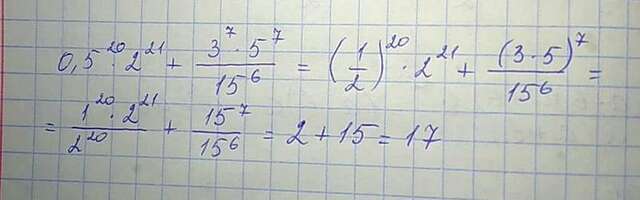 0,5^20 · 2^21 + (3^7 · 5^7)/15^6 = (1/2)^20 · 2^21 + (3·5)^7/15^6 =
= (1^20 · 2^21)/2^20 + 15^7/15^6 = 2 + 15 = 17